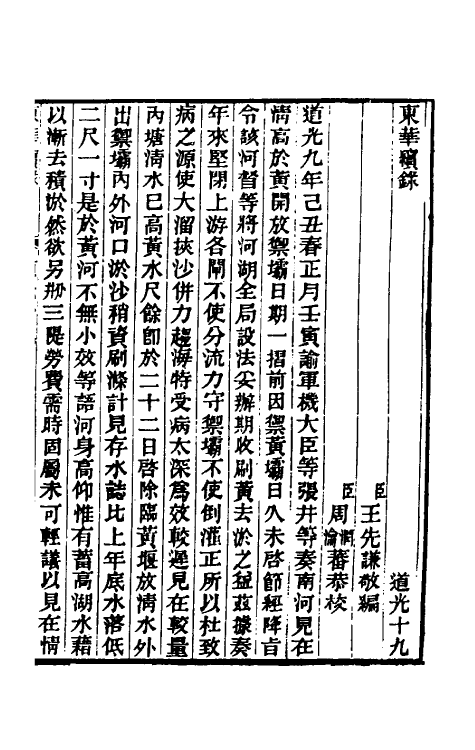 東華續錄 道光十九
臣王先謙敬編
臣周潤蕃 瀹蕃恭校
道光九年己丑春正月壬寅諭軍機大臣等張井等奏南河見在
情高於黃開放禦壩日期一摺前因禦黃壩日久未啓節經降旨
令該河督等將河湖全局設法妥辦期收刷黃去淤之益茲據奏
年來堅閉上游各閘不使分流力守禦壩不使倒灌正所以杜致
病之源使大溜挾沙併力趨海特受病太深爲效較遲見在較量
內塘淸水已高黃水尺餘卽於二十二日啓除臨黃堰放淸水外
出禦壩內外河口淤沙稍資刷滌計見存水誌比上年底水落低
二尺一寸是於黃河不無小效等語河身高仰惟有蓄高湖水藉
以漸去積淤然欲另刱三隄勞費需時固屬未可輕議以見在情